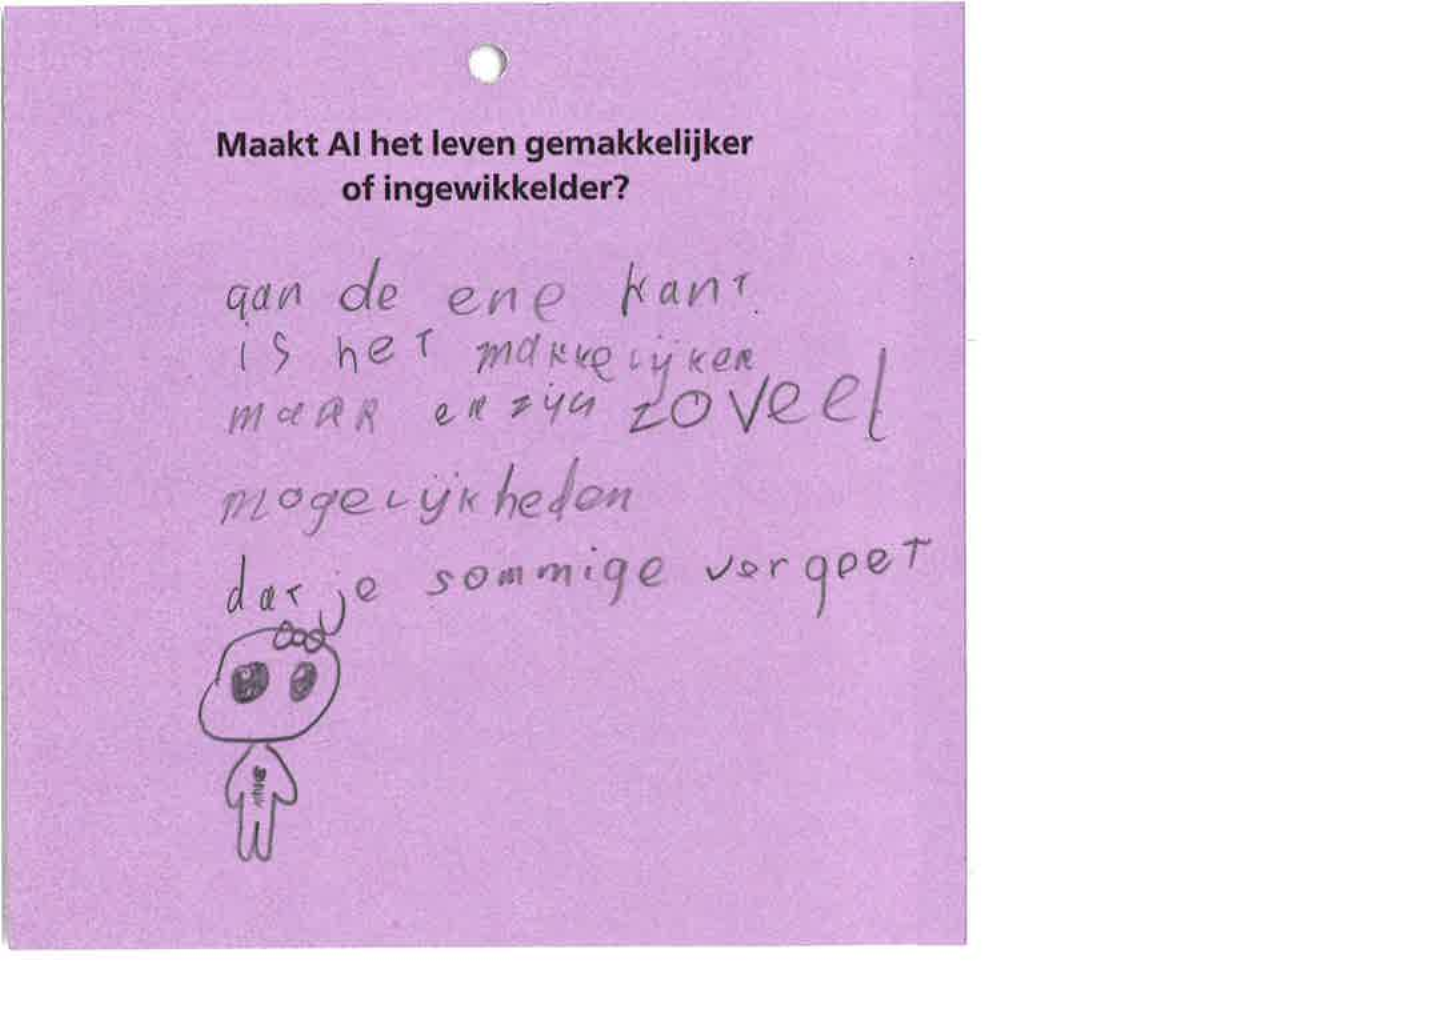 Maakt AI het leven gemakkelijker
of ingewikkelder?
aan de ene kant
is het makkelijker
maar er zijn zoveel
mogelijkheden
dat je sommige vergeet